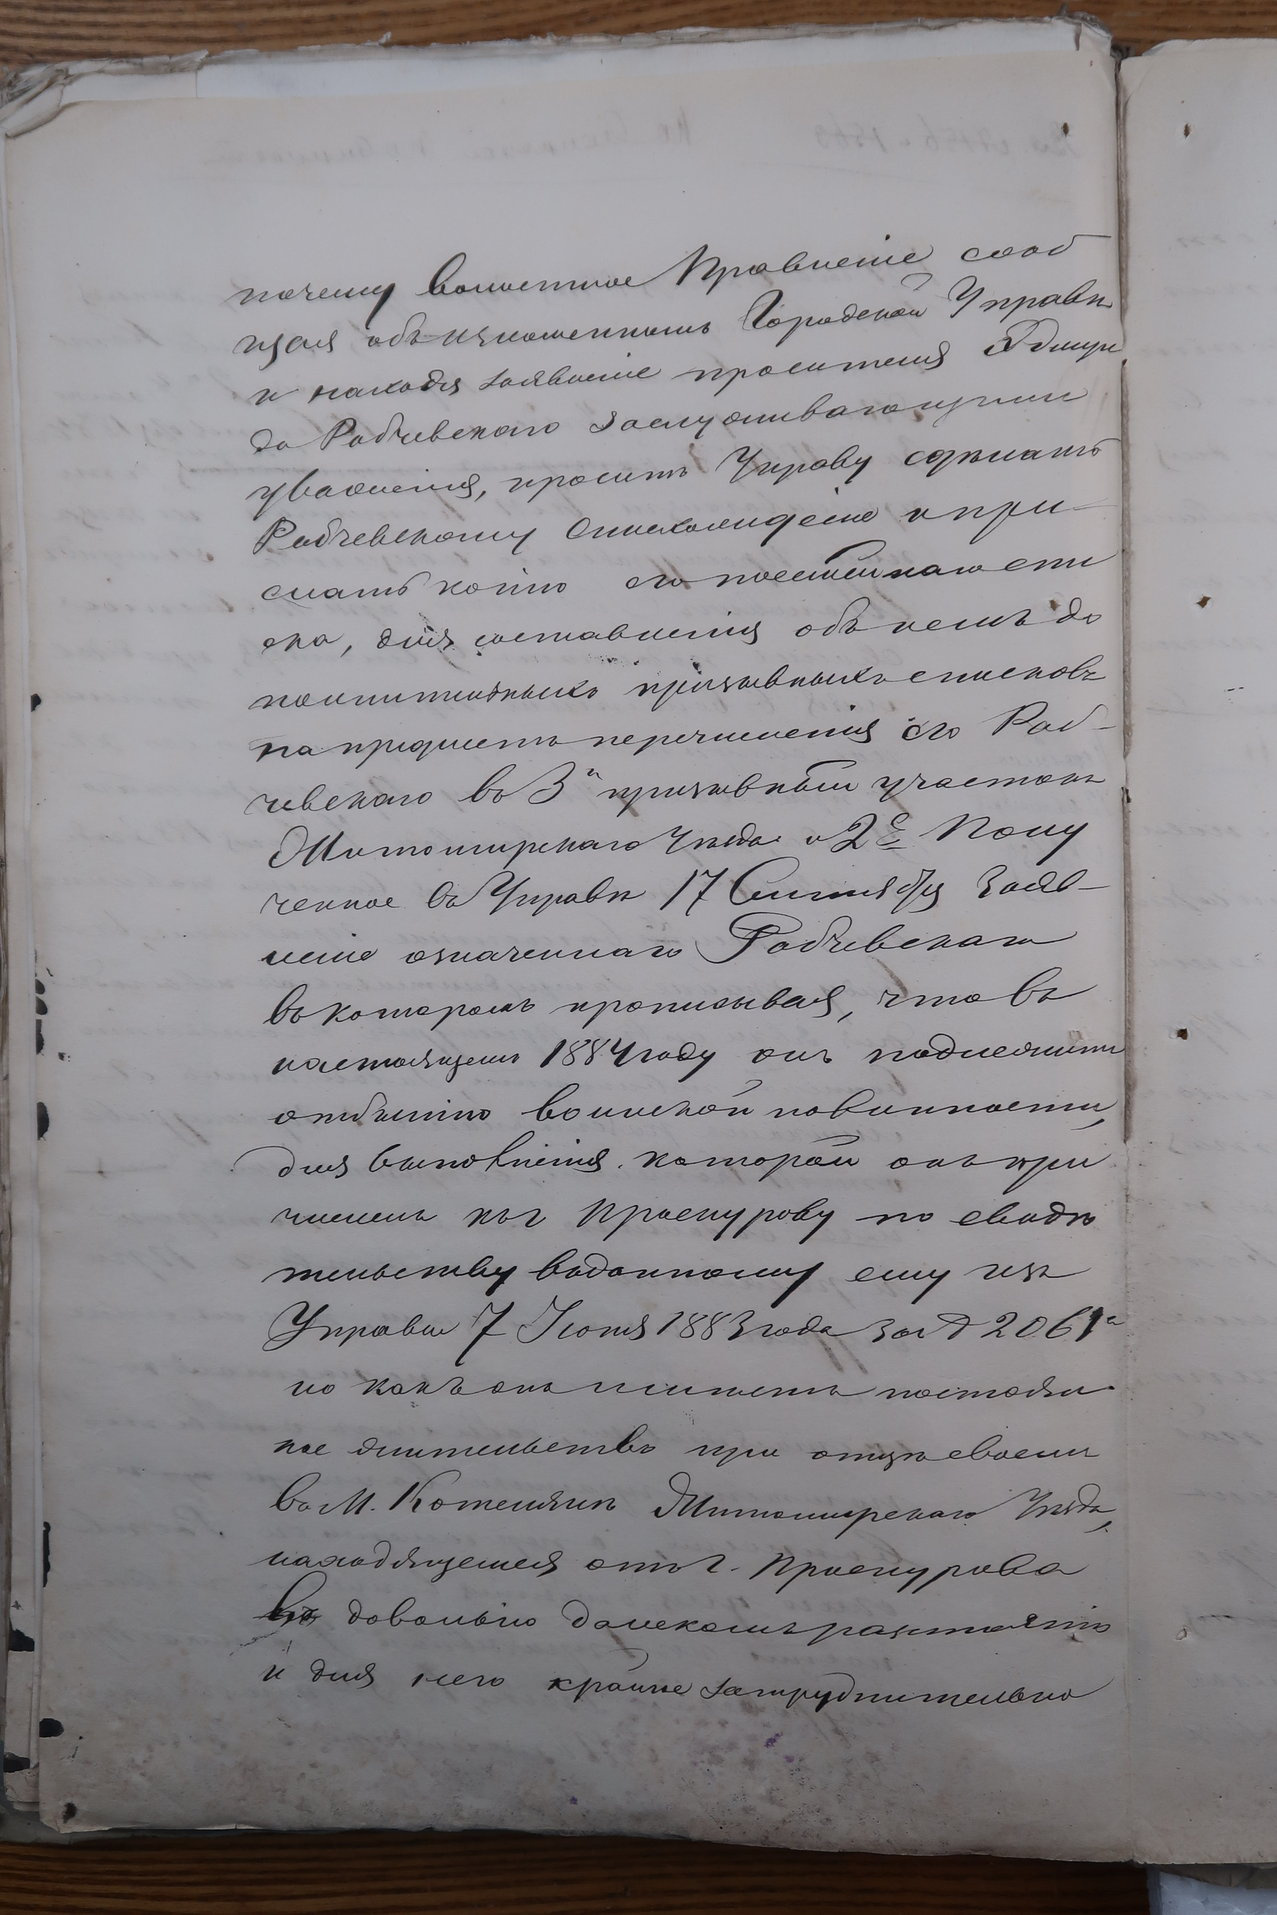 почему волостное Правленіе сооб
щая объ изложенномъ Городской Управѣ
и находя заявленіе просителя Эдмун
да Рабчевскаго заслуживающимъ
уваженія, проситъ Управу сдѣлать
Рабчевскому снисхожденіе и при-
слать копію его посемейнаго спи
ска, для составленія объ немъ до
полнительныхъ призывныхъ списковъ
на предметъ перечисленія его Раб-
чевскаго въ 3й призывный участокъ
Житомирскаго Уѣзда и 2е Полу
ченное въ Управѣ 17 Сентября Заяв-
леніе означеннаго Рабчевскаго
въ которомъ прописывая, что въ
настоящемъ 1884 году онъ подлежитъ
отбытію воинской повинности,
для выполненія которой онъ при
численъ къ г Проскурову по свидѣ
тельству выданному ему изъ
Управы 7 Іюня 1883 года за № 2061м
но какъ онъ имѣетъ постоян
ное жительство при отцѣ своемъ
въ М. Котельнѣ Житомирскаго Уѣзда,
находящемся отъ г. Проскурова
въ довольно далекомъ разстояніи
и для него крайне затруднительно